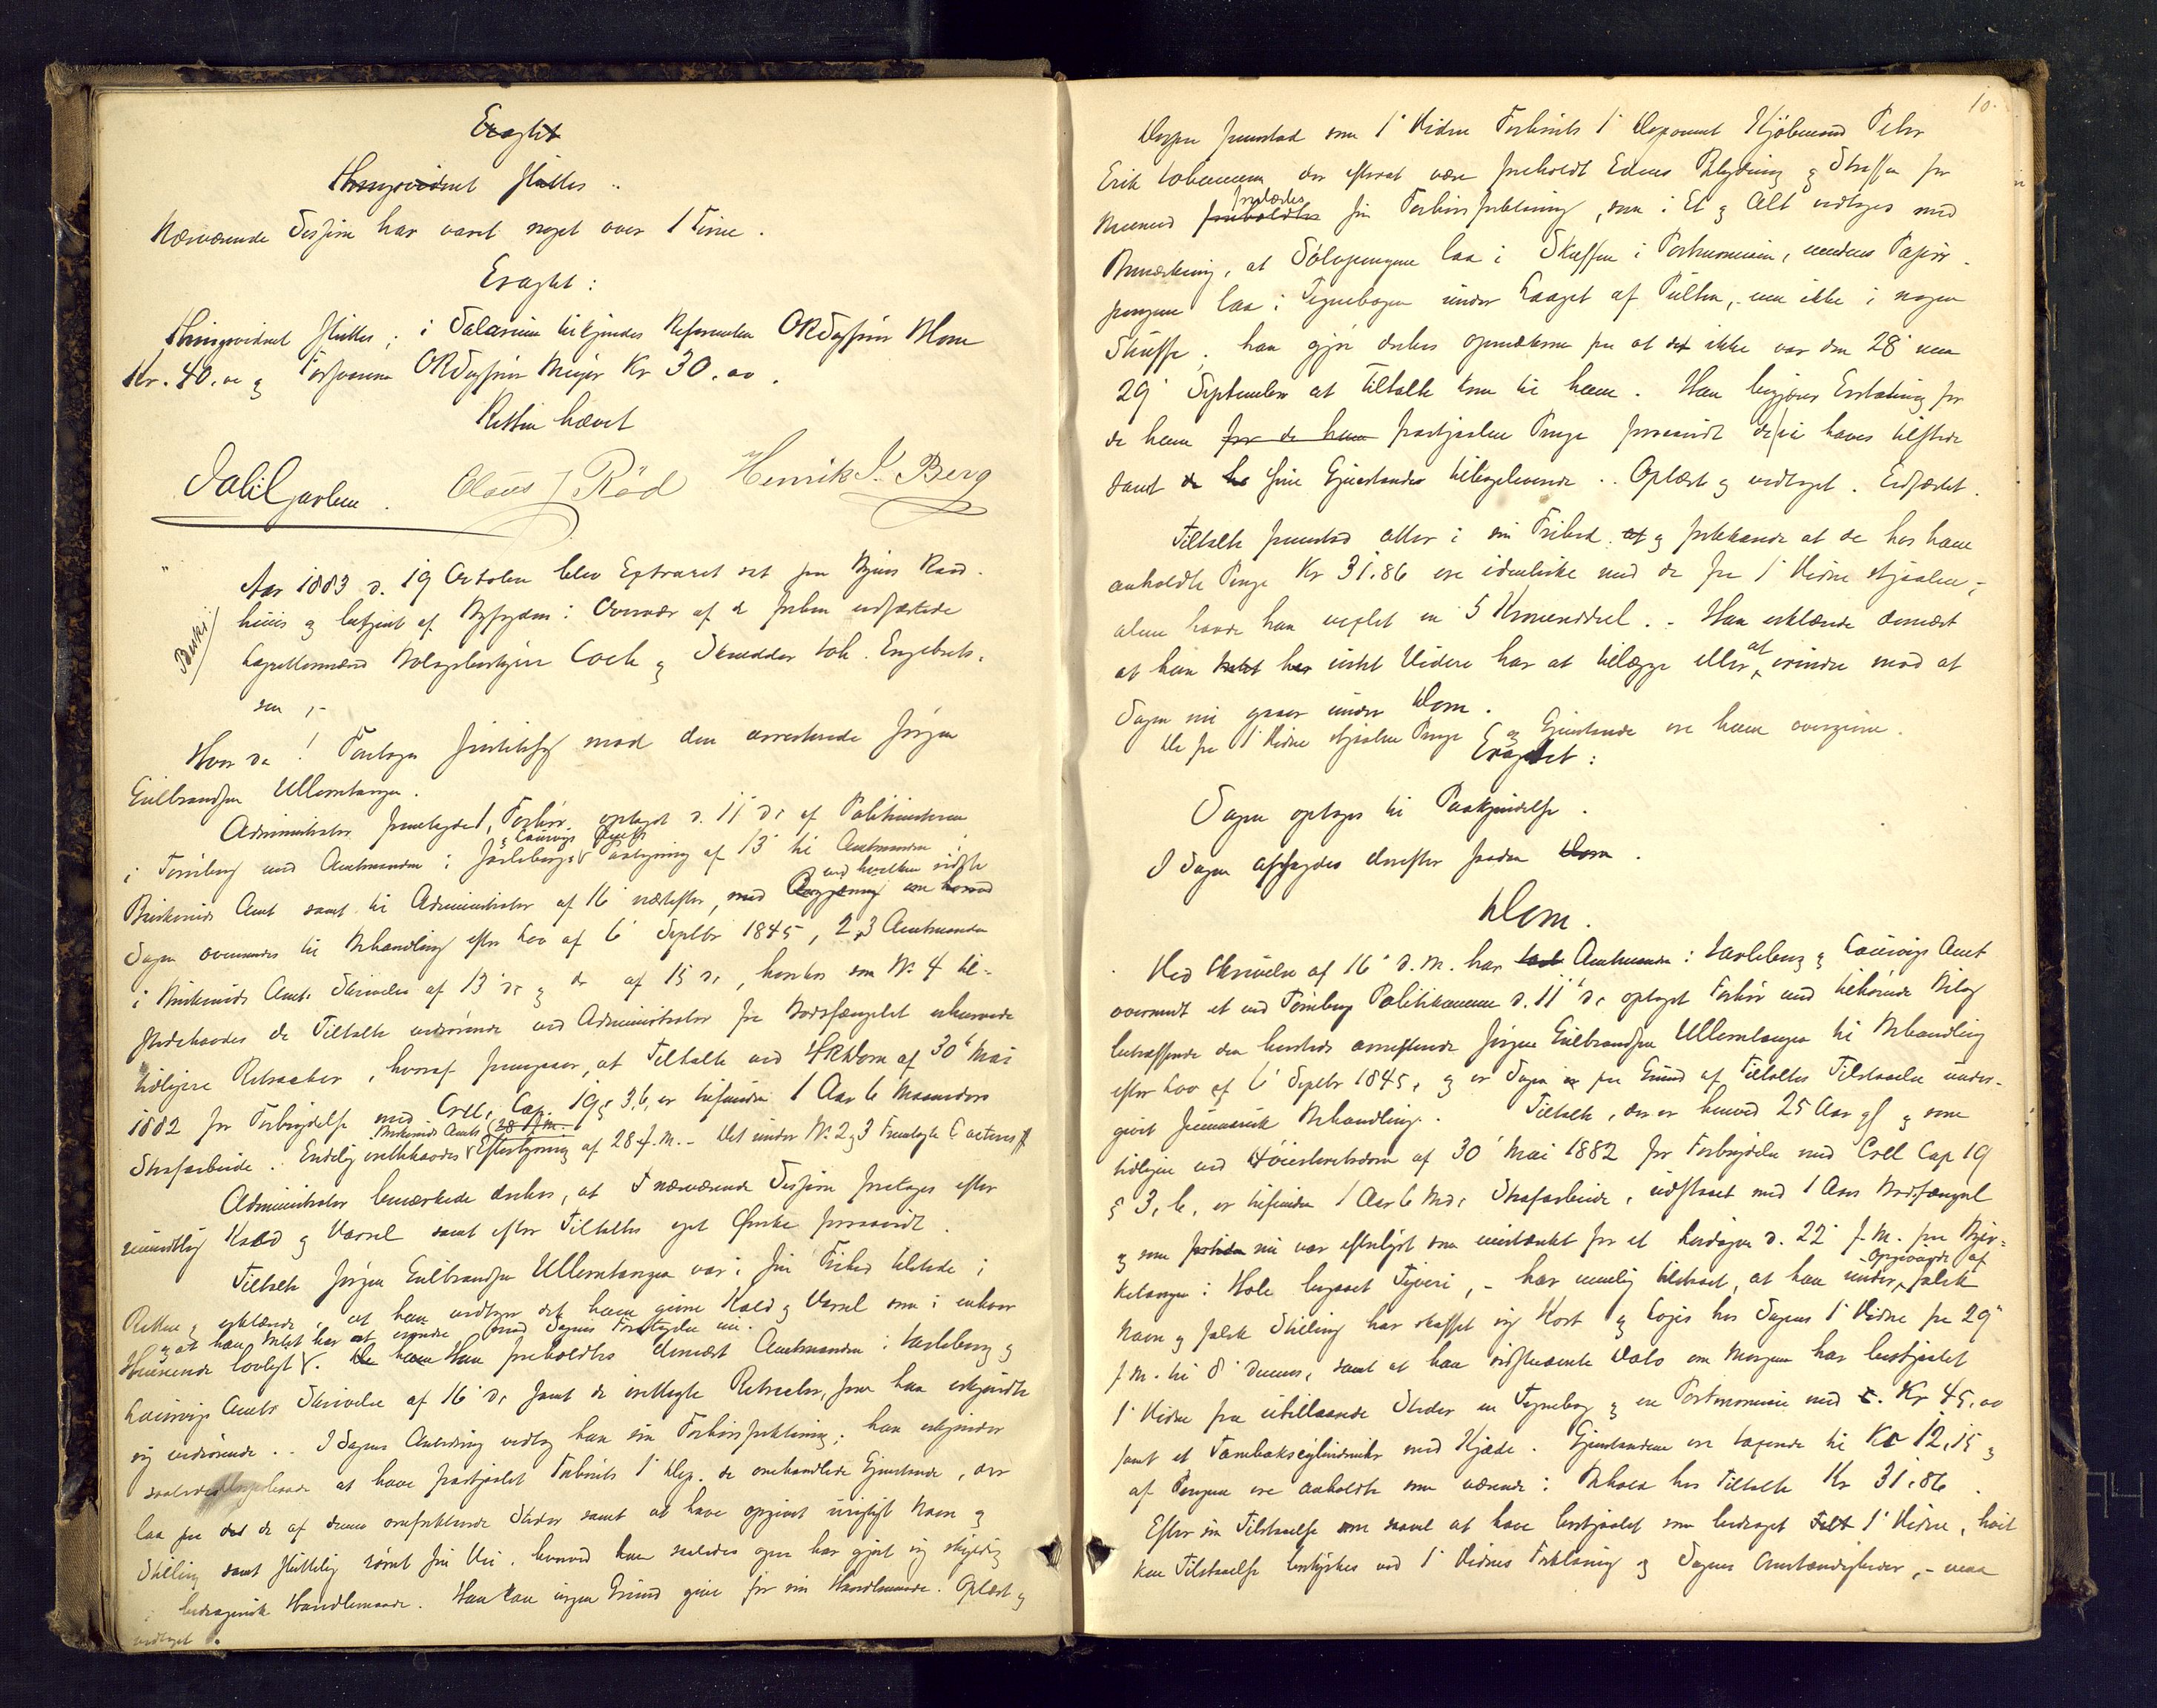 Eragtet
Thingsvidnet sluttes
Nærværende Session har varet noget over 1 Time.
Eragtet:
Thingsvidnet sluttes; i Salarium tilkjendes Referenten ORSagfører Blom
Kr. 40.00 og Forsvareren ORSagfører Meyer Kr 30.00.
Retten hævet
Claus J Rød Henrik J. Berg
Aar 1883 d. 19 October blev Extraret sat paa Byens Raad-
huus og betjent af Byfogden i Overvær af de forhen edfæstede
Laugrettesmænd og Skrædder Joh. Engebret-
sen,-
Hvor da! Foretoges Justitssag mod den arresterede Jørgen
Gulbrandsen Ullerntangen.
Administrator fremlagde 1, Forhør optaget d. 11 ds af Politimesteren
i Tønsberg med Amtmanden i Jarlsberg og Laurvigs Amts Paategning af 13 til Amtmanden
Buskeruds Amt samt til Administrator af 16 næstefter, med ved hvilken sidste
Sagen oversendes til Behandling efter Lov af 6 Septbr 1845, 2, 3 Amtmanden
i Buskeruds Amts Skrivelse af 13 ds og do af 15 ds, hvorhos som No 4 til-
stedehavdes de Tiltalte vedrørende ved Administrator fra Bodsfængslet erhvervede
tidligere Retsacter, hvoraf fremgaaer, at Tiltalte ved HRDom af 30 Mai
1882 for Forbrydelse mod Crll. Cap. 19 § 3, b, er tilfunden 1 Aar 6 Maaneders
Strafarbeide. Endelig irettehavdes Buskeruds Amts Efterlysning af 28 f.M. - Det under No 2 og 3 Fremlagte Acteres
Administrator bemærkede derhos, at nærværende Session foretages efter
mundtlig Kald og Varsel samt efter Tiltaltes eget Ønske forsaavidt.
Tiltalte Jørgen Gulbrandsen Ullerntangen var i sin Frihed tilstede i
Retten og erklærede, at han vedtager det ham givne Kald og Varsel som i enhver
Henseende lovligt og at han Intet har at erindre mod Sagens Foretagelse nu. Han foreholdtes dernæst Amtmanden i Jarlsberg og
Laurvigs Amts Skrivelse af 16 ds samt de irettelagte Retsacter, som han erkjendte
sig vedrørende.. I Sagens Anledning vedtog han sin Forhørsforklaring; han erkjender
saaledes at have frastjaalet Forhørets 1 Dep. de omhandlede Gjenstande, der
laa paa de af denne omforklarede Steder samt at have opgivet urigtigt Navn og
Stilling samt sluttelig rømt sin Vei, hvorved han saaledes ogsaa har gjort sig skyldig
bedragersk Handlemaade. Han kan ingen Grund give for sin Handlemaade. Oplæst og
vedtaget.
10.
Derpaa fremstod som 1 Vidne Forhørets 1 Deponent Kjøbmand Peter
Erik Johannesen der efterat være foreholdt Edens Betydning og Straffen for
Meened forelæstes sin Forhørsforklaring, som i Et og Alt vedtoges med
Bemærkning, at Sølvpengene laa i Skuffen i Portemonnaien, medens Papir-
pengene laa i Tegnebogen under Laaget af Pulten, men ikke i nogen
Skuffe. han gjør derhos opmærksom paa at det ikke var den 28 men
29 September at Tiltalte kom til ham. Han begjærer Erstatning for
de ham for de ham frastjaalne Penge forsaavidt disse haves tilstede
samt sine Gjenstander tilbageleverede.. Oplæst og vedtaget. Edfæstet.
Tiltalte fremstod atter i sin Frihed og forklarede at de hos ham
anholdte Penge Kr 31.86 ere identiske med de fra 1 Vidne stjaalne,-
alene havde han vexlet en 5 Kroneseddel. - Han erklærede dernæst
at han intet Videre har at tillægge eller at erindre mod at
Sagen nu gaaer under Dom.
De fra 1 Vidne stjaalne Penge og Gjenstande ere ham overgivne.
Eragtet:
Sagen optages til Paakjendelse.
I Sagen afsagdes derefter saadan Dom.
Dom.
Ved Skrivelse af 16 d.M. har Amtmanden i Jarlsberg og Laurvigs Amt
oversendt et ved Tønsberg Politikammer d. 11 ds optaget Forhør med tilhørende Bilag
betræffende den herstedes arresterede Jørgen Gulbrandsen Ullerntangen til Behandling
efter Lov af 6 Septbr 1845, og er Sagen paa Grund af Tiltaltes Tilstaaelse under-
givet summarisk Behandling. Tiltalte, der er henved 25 Aar gl og som
tidligere ved Høiesteretsdom af 30 Mai 1882 for Forbrydelse mod Crll Cap 19
§ 3, b, er tilfunden 1 Aar 6 Mdrs Strafarbeide, udstaaet med 1 Aars Bodsfængsel
og som nu var efterlyst som mistænkt for et Lørdagen d. 22 f.M. paa
i Hole begaaet Tyveri,- har nemlig tilstaaet, at han under Opgivende af falsk
Navn og falsk Stilling har skaffet sig Kost og Logis hos Sagens 1 Vidne fra 29
f.M. til 8 dennes, samt at han sidstnævnte Dato om Morgenen har bestjaalet
1 Vidne fra Steder en Tegnebog og en Portemonnaie med c. Kr 45.00
samt et Tombakscylinderuhr med Kjæde. Gjenstandene ere taxerede til Kr 12.15 og
af Pengene ere anholdte som værende i Behold hos Tiltalte Kr 31.86.
Efter sin Tilstaaelse om saavel at have bestjaalet som bedraget 1 Vidne, hvil-
ken Tilstaaelse bestyrkes ved 1 Vidnes Forklaring og Sagens Omstændigheder,- maa